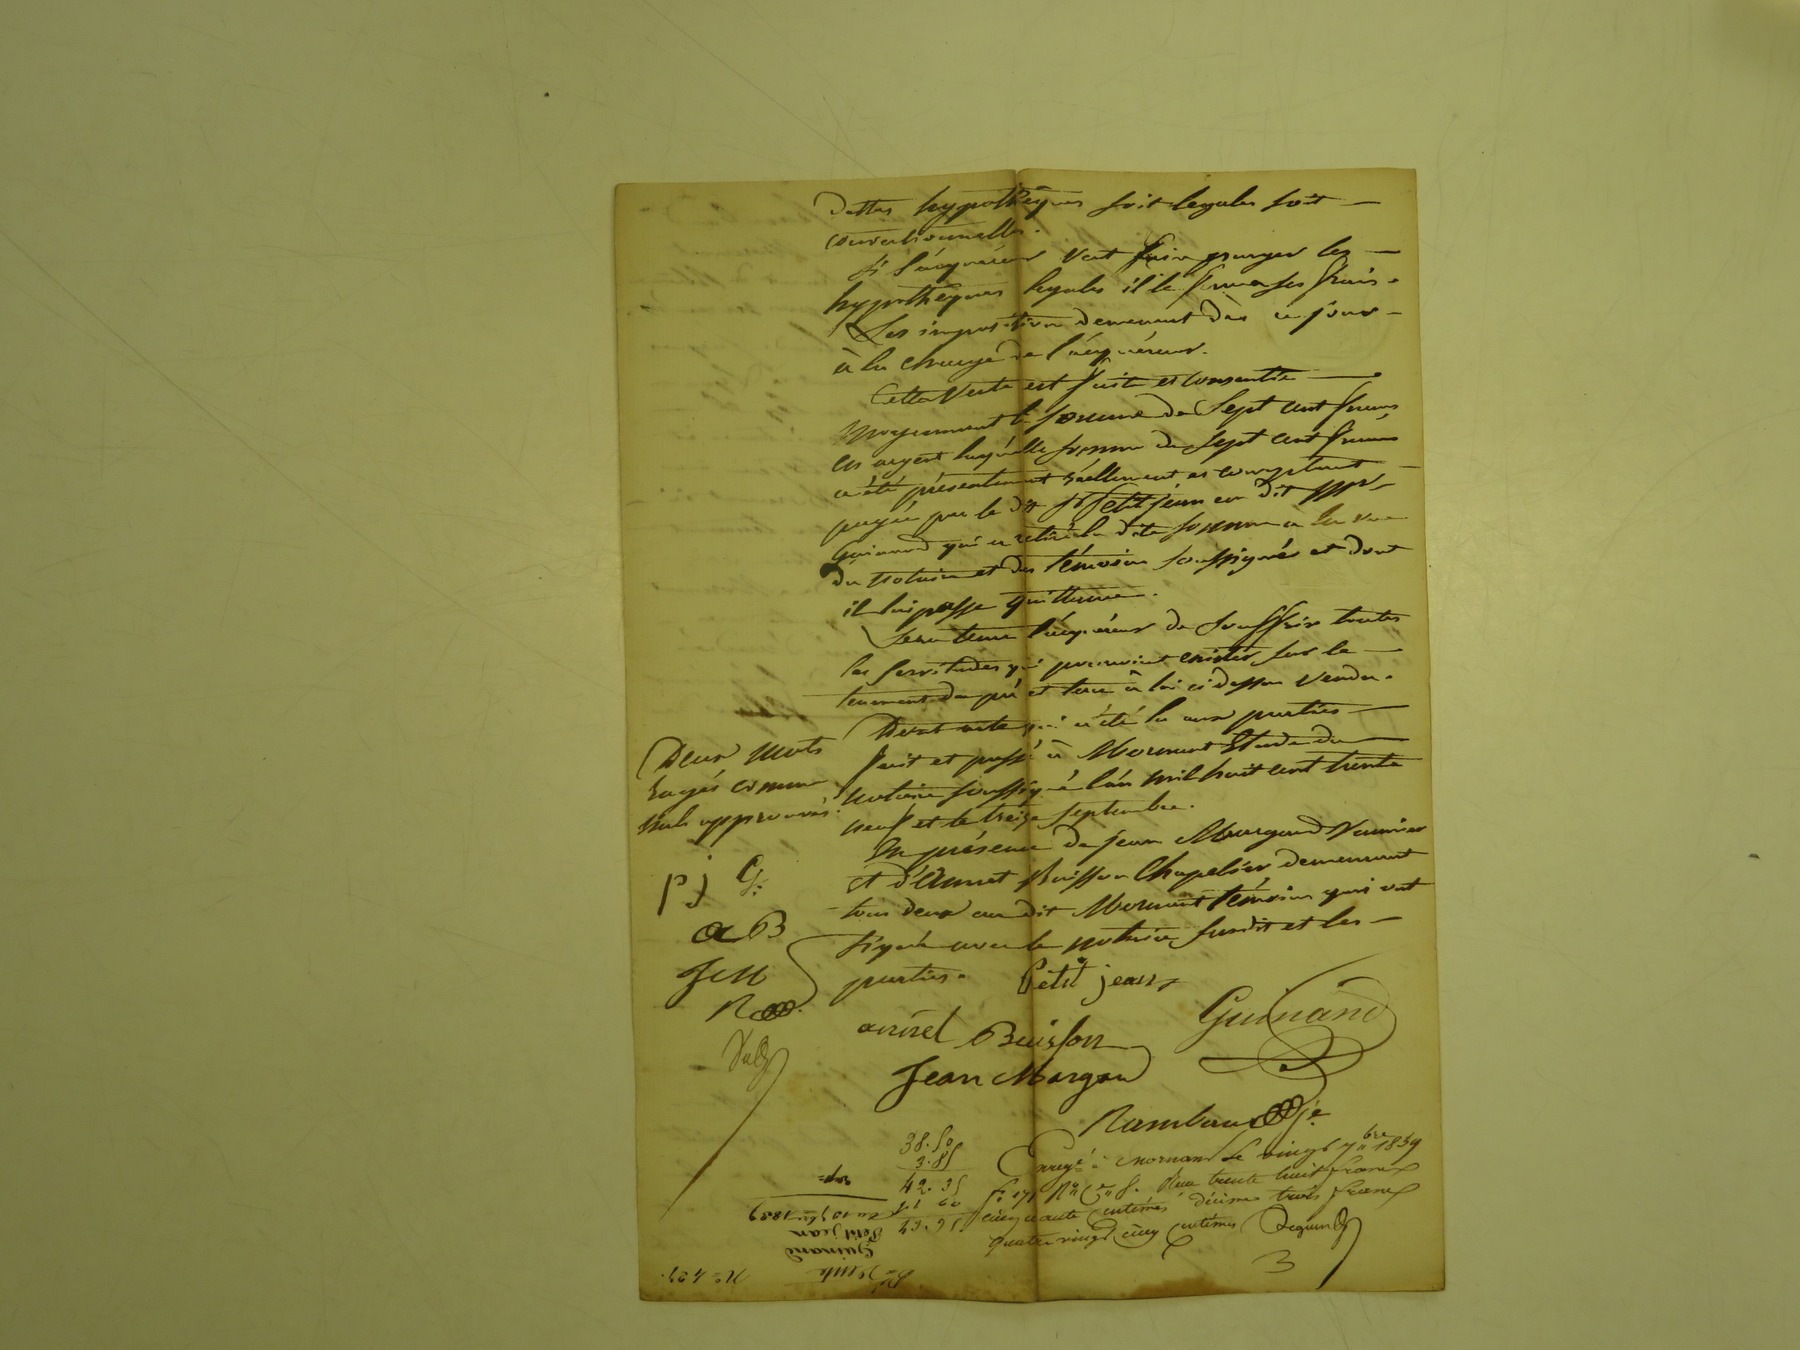 dettes hypothèques soit legales soit —
conventionnelles.
Si l'acquéreur veut faire purger les —
hypothèques legales il le fera a ses frais.
Les imposition demeurent dès ce jour —
à la charge de l'acquéreur.
Cette Vente est faite et consentie —
moyennant la somme de Sept cent francs
en argent laquelle somme de Sept cent francs
a été présentement réellement et comptant —
payée par le dit Sr Petitjean au dit
Guinand qui a retiré la dite somme a la vue
du notaire et des témoins soussignés et dont
il lui passe quittance.
Sera tenu l'acquéreur de souffrir toutes
les servitudes qui pourroient exister sur le —
tenement de pré et terre à lui ci dessus vendu.
Dont acte qui a été lu aux parties —
fait et passé à Mornant Etude du
notaire soussigné l'an mil huit cent trente
neuf et le treize septembre.
En présence de jean Mourgand
et d'Annet Buisson Chapelier demeurant
tous deux au dit Mornant témoins qui ont
signé avec le notaire susdit et les —
parties.
Deux mots
rayés comme
nuls approuvés.
p j G.
a B
J M
R
Petit jean
Guinand
annet Buisson
Jean Morgan
Rambaud
38.50
3.85
42.35
64.65
Enregé à mornant le vingt 7bre 1839
fo 171 Ro Ce 8. Reçu trente huit francs
cinquante centimes décime trois francs
quatre vingt cinq centimes
3
Vente
Guinand
Petit jean
1839